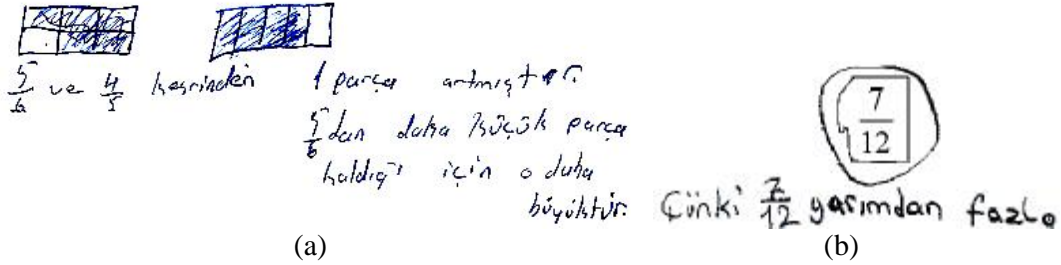 5/6 ve 4/5 kesrinden 1 parça artmıştır.
5/6 dan daha küçük parça
kaldığı için o daha
büyüktür.
(a)
7/12
Çünki 7/12 yarımdan fazla
(b)